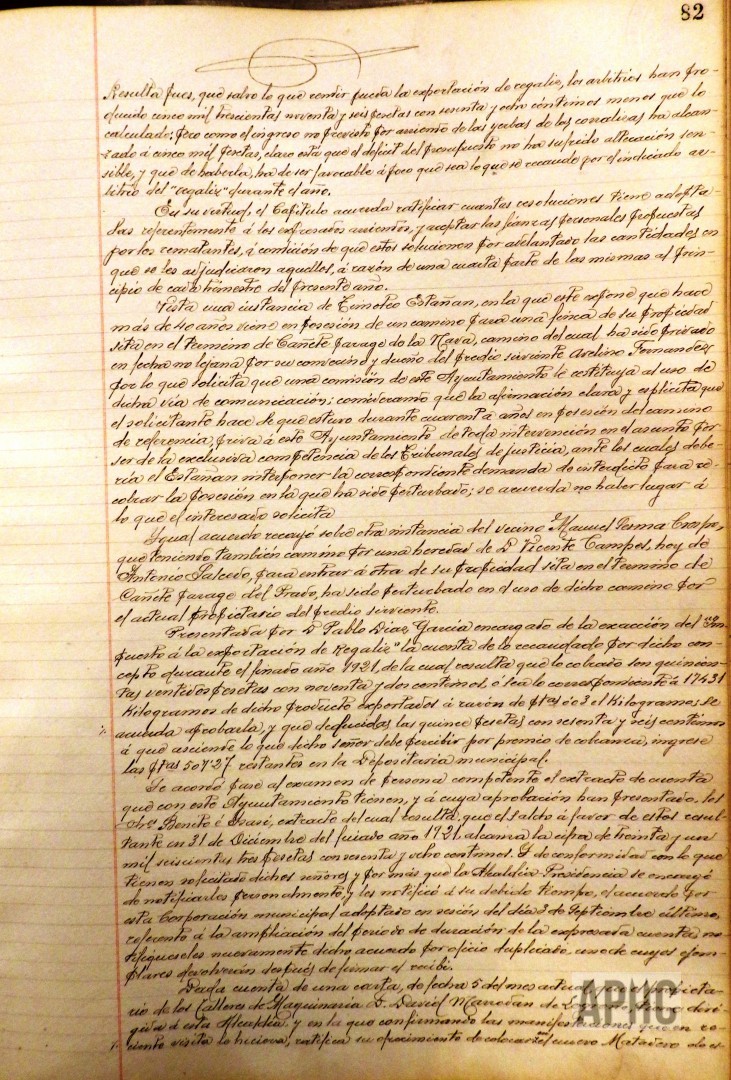 82
Resulta pues, que salvo lo que rendir pueda la exportación de regaliz, los arbitrios han pro-
ducido cinco mil trescientas noventa y seis pesetas con sesenta y ocho céntimos menos que lo
calculado; pero como el ingreso no previsto por arriendo de las yerbas de las corralizas ha alcan-
zado á cinco mil pesetas, claro está que el déficit del presupuesto no ha sufrido alteración sen-
sible, y que de haberla, ha de ser favorable á poco que sea lo que se recaude por el indicado ar-
bitrio del "regaliz" durante el año.
En su virtud, el Capítulo acuerda ratificar cuantas resoluciones tiene adopta-
das referentemente á los expresados arriendos, y aceptar las fianzas personales propuestas
por los rematantes, á condición de que estos solucionen por adelantado las cantidades en
que se les adjudicaron aquellos, á razón de una cuarta parte de las mismas al prin-
cipio de cada trimestre del presente año.
Vista una instancia de Timoteo Españan, en la que este expone que hace
más de 40 años viene en posesión de un camino para una finca de su propiedad
sita en el término de Cañete parage de la Nava, camino del cual ha sido privado
en fecha no lejana por su convecino y dueño del predio sirviente Avelino Fernandez
por lo que solicita que una comisión de este Ayuntamiento le restituya al uso de
dicha vía de comunicación; considerando que la afirmación clara y explícita que
el solicitante hace de que estuvo durante cuarenta años en posesión del camino
de referencia, priva á este Ayuntamiento de toda intervención en el asunto por
ser de la exclusiva competencia de los Tribunales de justicia, ante los cuales debe-
ría el Españan interponer la correspondiente demanda de interdicto para re-
cobrar la posesión en la que ha sido perturbado; se acuerda no haber lugar á
lo que el interesado solicita
Igual acuerdo recayó sobre otra instancia del vecino Manuel Lesma Crespo,
que teniendo también camino por una heredad de D. Vicente Campos, hoy de
Antonio Salcedo, para entrar á otra de su propiedad sita en el término de
Cañete parage del Prado, ha sido perturbado en el uso de dicho camino por
el actual propietario del predio sirviente.
Presentada por D. Pablo Diaz García encargado de la exacción del "Im-
puesto á la exportación de Regaliz" la cuenta de lo recaudado por dicho con-
cepto durante el finado año 1921, de la cual resulta que lo cobrado son quinien-
tas ventidos pesetas con noventa y dos centimos, ó sea lo correspondiente á 17431
Kilogramos de dicho producto exportados á razón de ptas 0'03 el Kilogramo; se
acuerda aprobarla, y que deducidas las quince pesetas con sesenta y seis centimos
á que asciende lo que dicho señor debe percibir por premio de cobranza, ingrese
las ptas 507'27 restantes en la Depositaría municipal.
Se acordó pase al examen de persona competente el extracto de cuenta
que con este Ayuntamiento tienen, y á cuya aprobación han presentado, los
Sres Benito é, extracto del cual resulta que el saldo á favor de estos resul-
tante en 31 de Diciembre del finado año 1921 alcanza la cifra de treinta y un
mil seiscientas tres pesetas con sesenta y ocho centimos. Y de conformidad con lo que
tienen solicitado dichos señores y por más que la Alcaldía-Presidencia se encargó
de notificarles personalmente, y les notificó á su debido tiempo, el acuerdo por
esta Corporación municipal adoptado en sesión del día 3 de Septiembre último,
referente á la ampliación del periodo de duración de la expresada cuenta no-
tifíqueseles nuevamente dicho acuerdo por oficio duplicado, uno de cuyos ejem-
plares devolverán después de firmar el recibí.
Dada cuenta de una carta, de fecha 5 del mes actual, propieta-
rio de los Talleres de Maquinaria D. David de diri-
gida á esta Alcaldía y en la que confirmando las manifestaciones que en re-
ciente visita le hiciera, ratifica su ofrecimiento de colocar el nuevo Matadero de es-
APMC